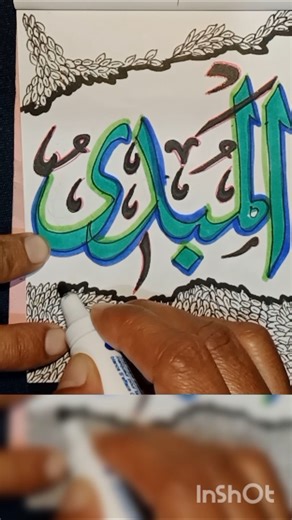 المبدئ
InShOt